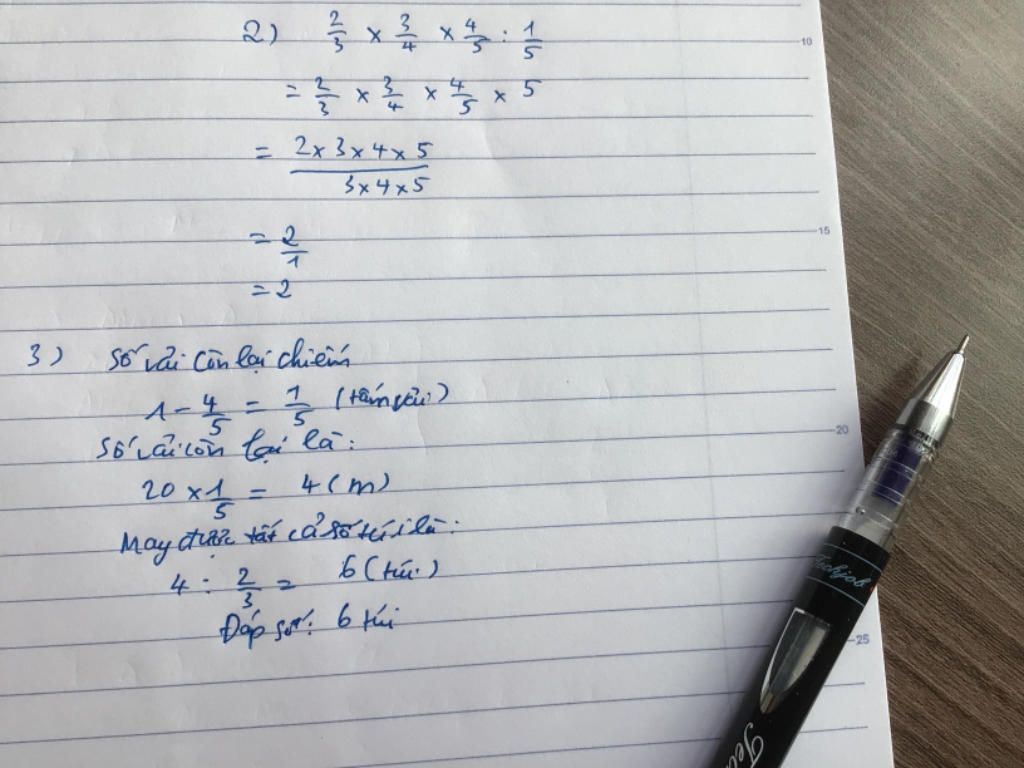 2) 2/3 × 3/4 × 4/5 : 1/5
= 2/3 × 3/4 × 4/5 × 5
= 2×3×4×5 / 3×4×5
= 2/1
= 2
3) Số vải còn lại chiếm
1 - 4/5 = 1/5 (tấm vải)
Số vải còn lại là:
20 × 1/5 = 4 (m)
May được tất cả số túi là:
4 : 2/3 = 6 (túi)
Đáp số: 6 túi
10
15
20
25
Techjob